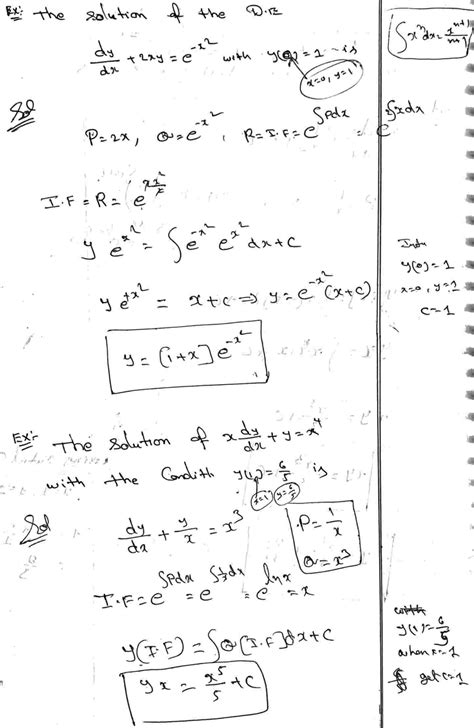 Ex:- The solution of the D.E
dy/dx + 2xy = e^{-x^2} with y(0) = 1 is
x=0, y=1
∫x^n dx = x^{n+1}/n+1
Sol
P = 2x, Q = e^{-x^2}, R = I.F = e^{∫Pdx} = e^{2∫xdx}
I.F = R = e^{2x^2/2}
y e^{x^2} = ∫e^{-x^2} e^{x^2} dx + C
y(0) = 1
x=0, y=1
C=1
y e^{+x^2} = x + c ⇒ y = e^{-x^2}(x+c)
y = [1+x] e^{-x^2}
Ex:- The solution of x dy/dx + y = x^4
with the Condith y(1) = 6/5 is
x=1 y=6/5
Sol dy/dx + y/x = x^3
P = 1/x
Q = x^3
I.F = e^{∫Pdx} = e^{∫1/x dx} = e^{ln x} = x
y(I.F) = ∫Q[I.F]dx + C
y x = x^5/5 + C
y(1) = 6/5
when x=1
get c=1